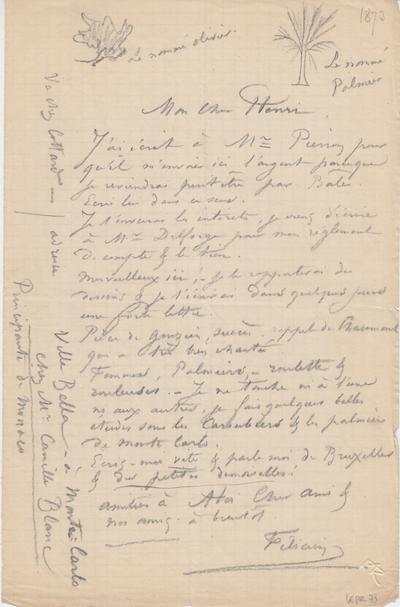 1873
le nommé olivier.
Le nommé
Palmier
Mon Cher Henri,
J'ai écrit à Mr Pierron pour
qu'il m'envoie ici l'argent parceque
je reviendrai peut être par Bâle.
Ecris lui dans ce sens.
Je t'enverrai les intérêts, je viens d'écrire
à Mr Delforge pour mon règlement
de compte & le tien.
Merveilleux ici! - je te rapporterai des
dessins & je t'écrirai dans quelques jours
une forte lettre.
Pièce de Gouzien, succès, rappel de Chaumont
qui a très bien chanté
Femmes, Palmiers - roulette &
rouleuses. - Je ne touche ni à l'une
ni aux autres, je fais quelques belles
études sous les Caroubiers & les palmiers
de Monte Carlo.
Ecris-moi vite & parle moi de Bruxelles
& des petites demoiselles!
amitiés à Cher ami &
nos amis, à bientôt
Félicien
Va chez Cottard - / adresse
Villa Bella - à Monte-Carlo
chez Mr Camille Blanc
Principauté de Monaco
LEPR 73